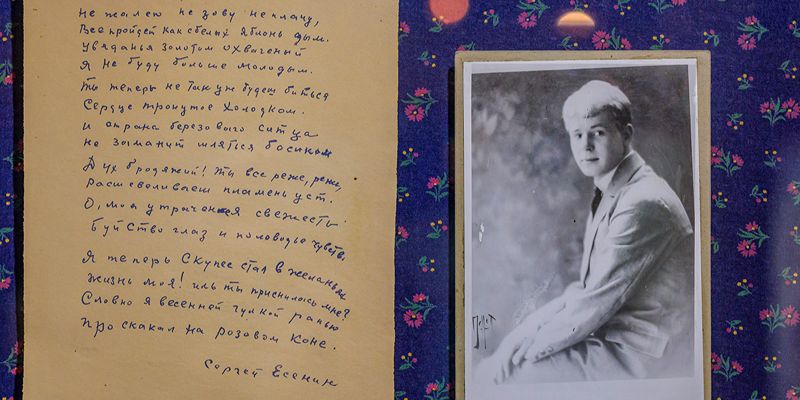 Не жалею не зову не плачу,
Все пройдет как с белых яблонь дым.
Увяданья золотом охваченный
Я не буду больше молодым.
Ты теперь не так уж будешь биться
Сердце тронутое холодком.
И страна березового ситца
Не заманит шляться босиком
Дух бродяжий! Ты все реже, реже,
Расшевеливаешь пламень уст.
О, моя утраченная свежесть
Буйство глаз и половодье чувств.
Я теперь скупее стал в желаньях
Жизнь моя! иль ты приснилась мне?
Словно я весенней гулкой ранью
Проскакал на розовом коне.
Сергей Есенин